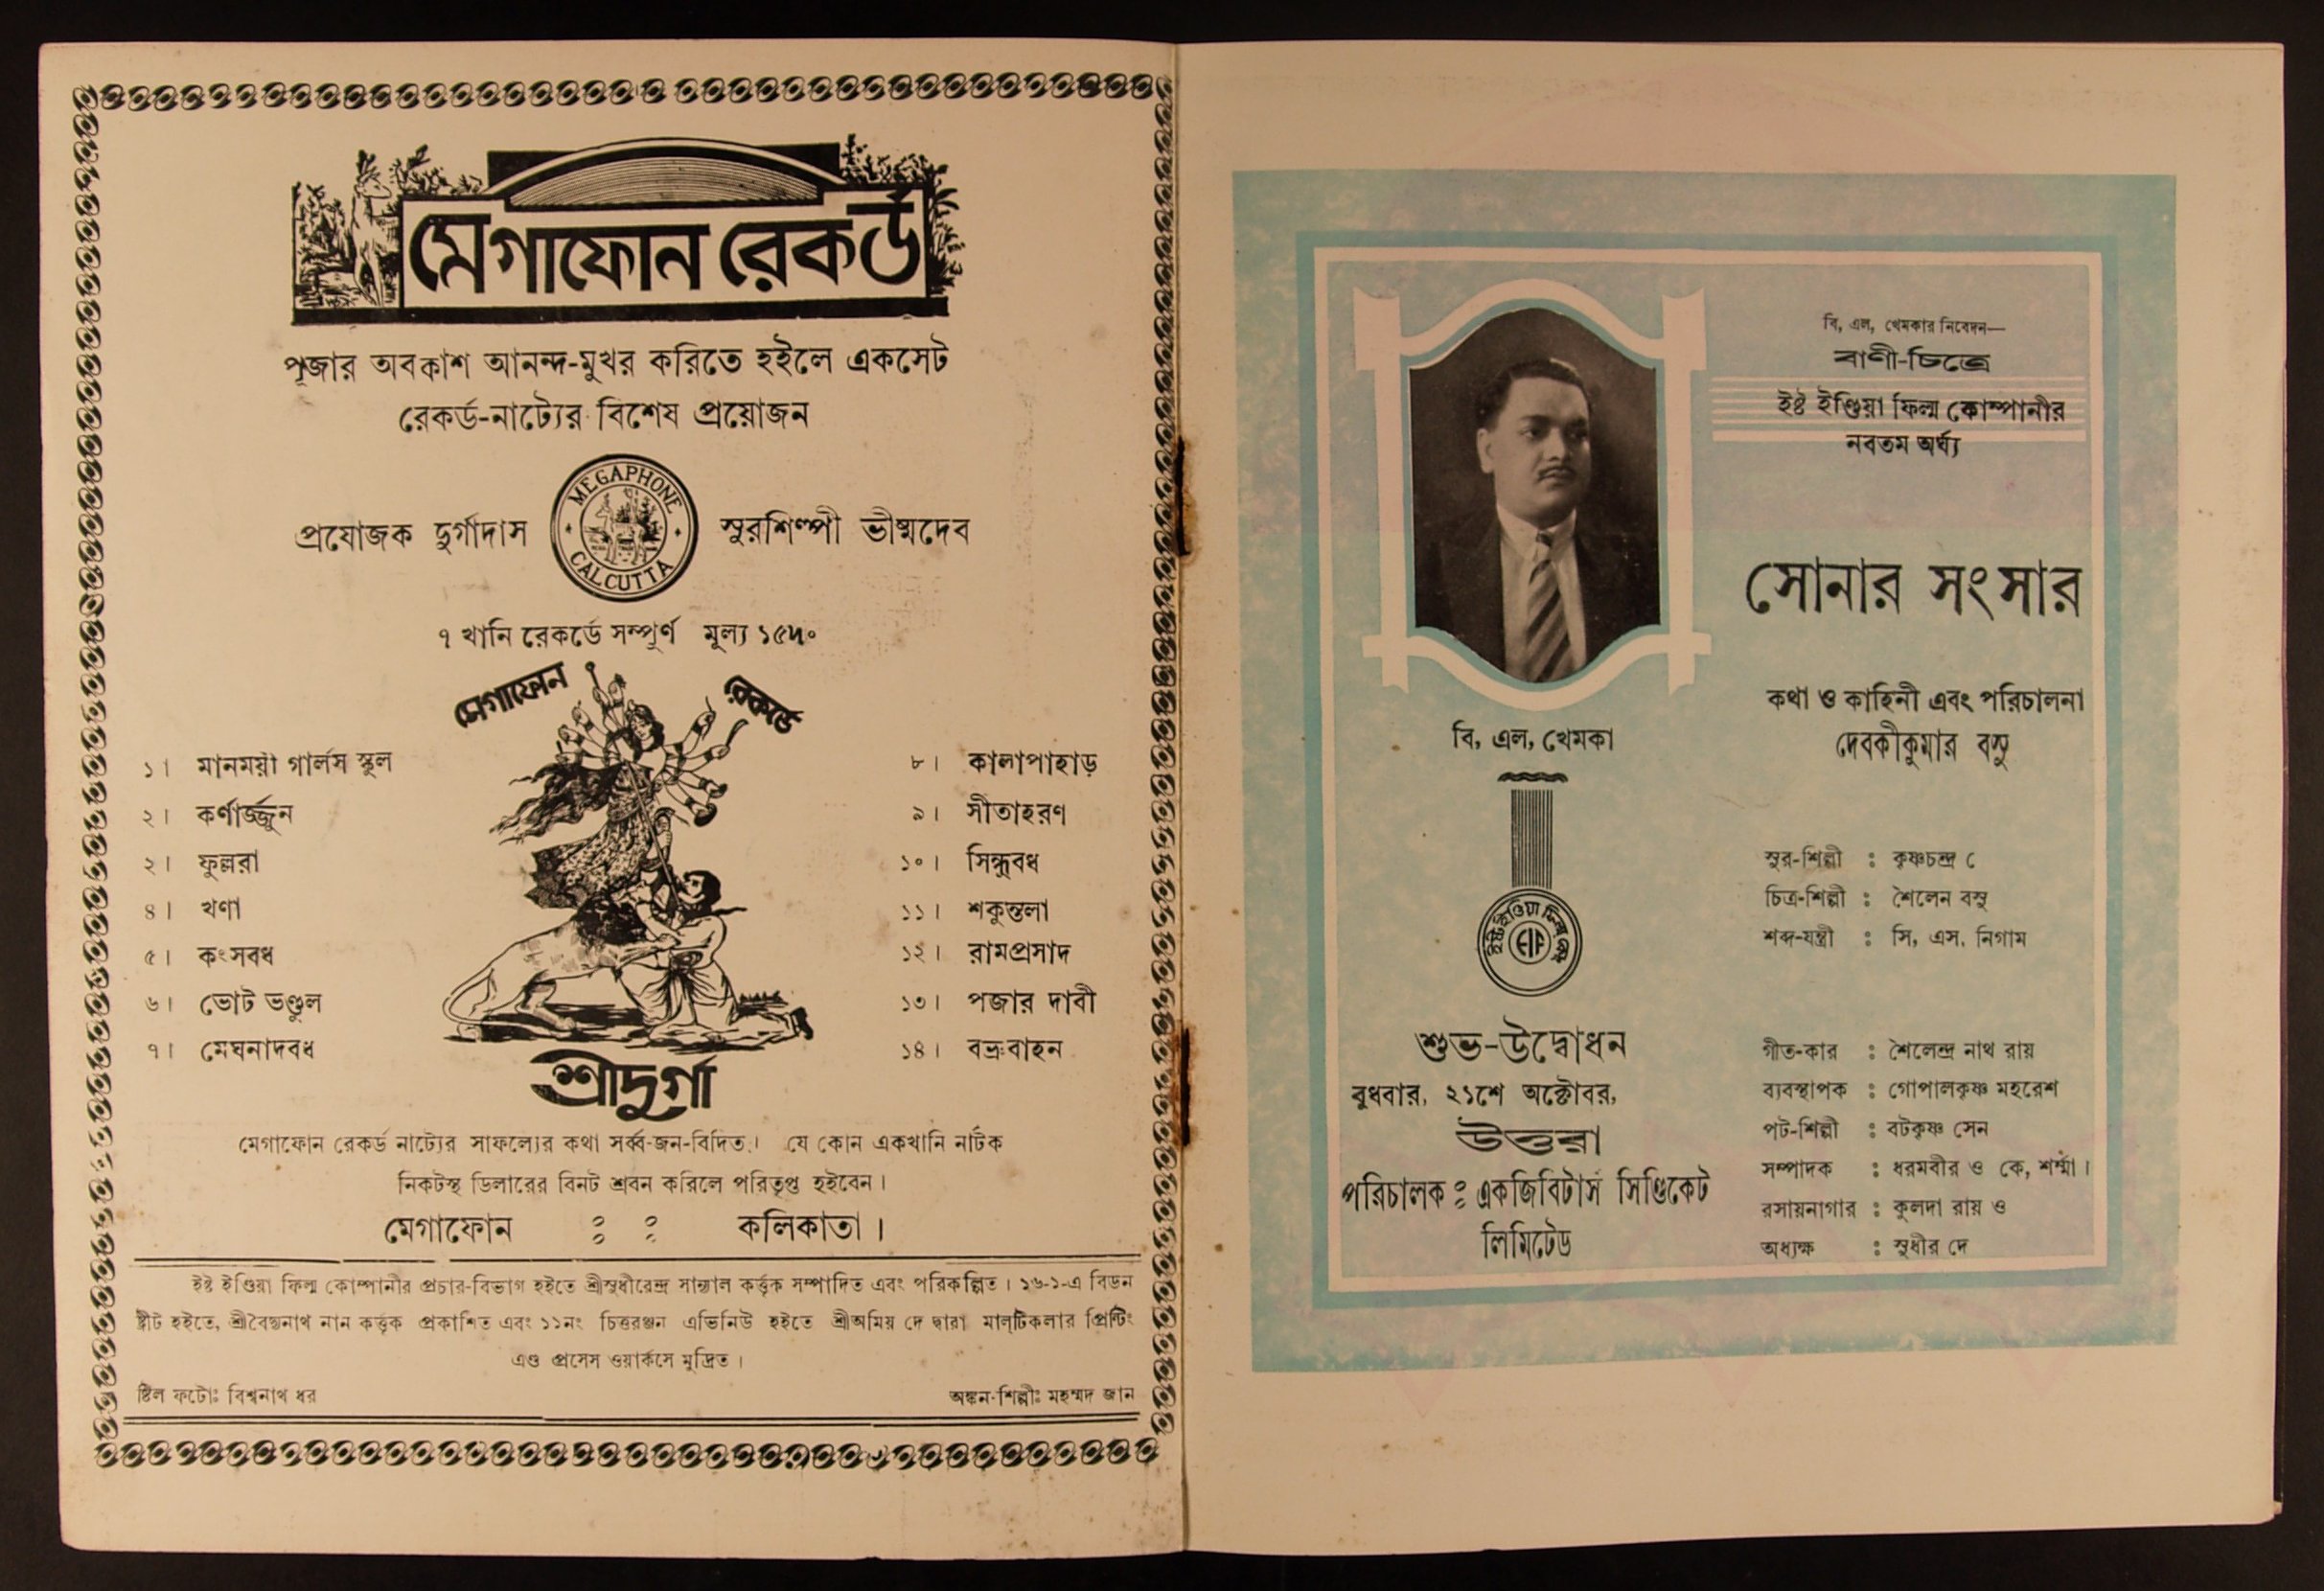 মেগাফোন রেকর্ড
পূজার অবকাশ আনন্দ-মুখর করিতে হইলে একসেট
রেকর্ড-নাট্যের বিশেষ প্রয়োজন
প্রযোজক দুর্গাদাস
MEGAPHONE
CALCUTTA
সুরশিল্পী ভীষ্মদেব
৭ খানি রেকর্ডে সম্পূর্ণ মূল্য ১৫৸৹
মেগাফোন রেকর্ডে
১। মানময়ী গার্লস স্কুল
২। কর্ণার্জ্জুন
২। ফুল্লরা
৪। খণা
৫। কংসবধ
৬। ভোট ভণ্ডুল
৭। মেঘনাদবধ
৮। কালাপাহাড়
৯। সীতাহরণ
১০। সিন্ধুবধ
১১। শকুন্তলা
১২। রামপ্রসাদ
১৩। পজার দাবী
১৪। বভ্রুবাহন
শ্রীদুর্গা
মেগাফোন রেকর্ড নাট্যের সাফল্যের কথা সর্ব্ব-জন-বিদিত। যে কোন একখানি নাটক
নিকটস্থ ডিলারের বিনট শ্রবন করিলে পরিতৃপ্ত হইবেন।
মেগাফোন ঃ ঃ কলিকাতা।
ইষ্ট ইণ্ডিয়া ফিল্ম কোম্পানীর প্রচার-বিভাগ হইতে শ্রীসুধীরেন্দ্র সান্যাল কর্ত্তৃক সম্পাদিত এবং পরিকল্পিত। ১৬-১-এ বিডন
ষ্ট্রীট হইতে, শ্রীবৈদ্যনাথ নান কর্ত্তৃক প্রকাশিত এবং ১১নং চিত্তরঞ্জন এভিনিউ হইতে শ্রীঅমিয় দে দ্বারা মাল্টিকলার প্রিন্টিং
এণ্ড প্রসেস ওয়ার্কসে মুদ্রিত।
ষ্টিল ফটোঃ বিশ্বনাথ ধর
অঙ্কন-শিল্পীঃ মহম্মদ জান
বি, এল, খেমকার নিবেদন—
বাণী-চিত্রে
ইষ্ট ইণ্ডিয়া ফিল্ম কোম্পানীর
নবতম অর্ঘ্য
সোনার সংসার
কথা ও কাহিনী এবং পরিচালনা
দেবকীকুমার বসু
বি, এল, খেমকা
ইষ্ট ইণ্ডিয়া ফিল্ম কোং
EIF
শুভ-উদ্বোধন
বুধবার, ২১শে অক্টোবর,
উত্তরা
পরিচালক ঃ একজিবিটার্স সিণ্ডিকেট
লিমিটেড
সুর-শিল্পী : কৃষ্ণচন্দ্র
চিত্র-শিল্পী : শৈলেন বসু
শব্দ-যন্ত্রী : সি, এস, নিগাম
গীত-কার : শৈলেন্দ্র নাথ রায়
ব্যবস্থাপক : গোপালকৃষ্ণ মহরেশ
পট-শিল্পী : বটকৃষ্ণ সেন
সম্পাদক : ধরমবীর ও কে, শর্ম্মা।
রসায়নাগার : কুলদা রায় ও
অধ্যক্ষ : সুধীর দে